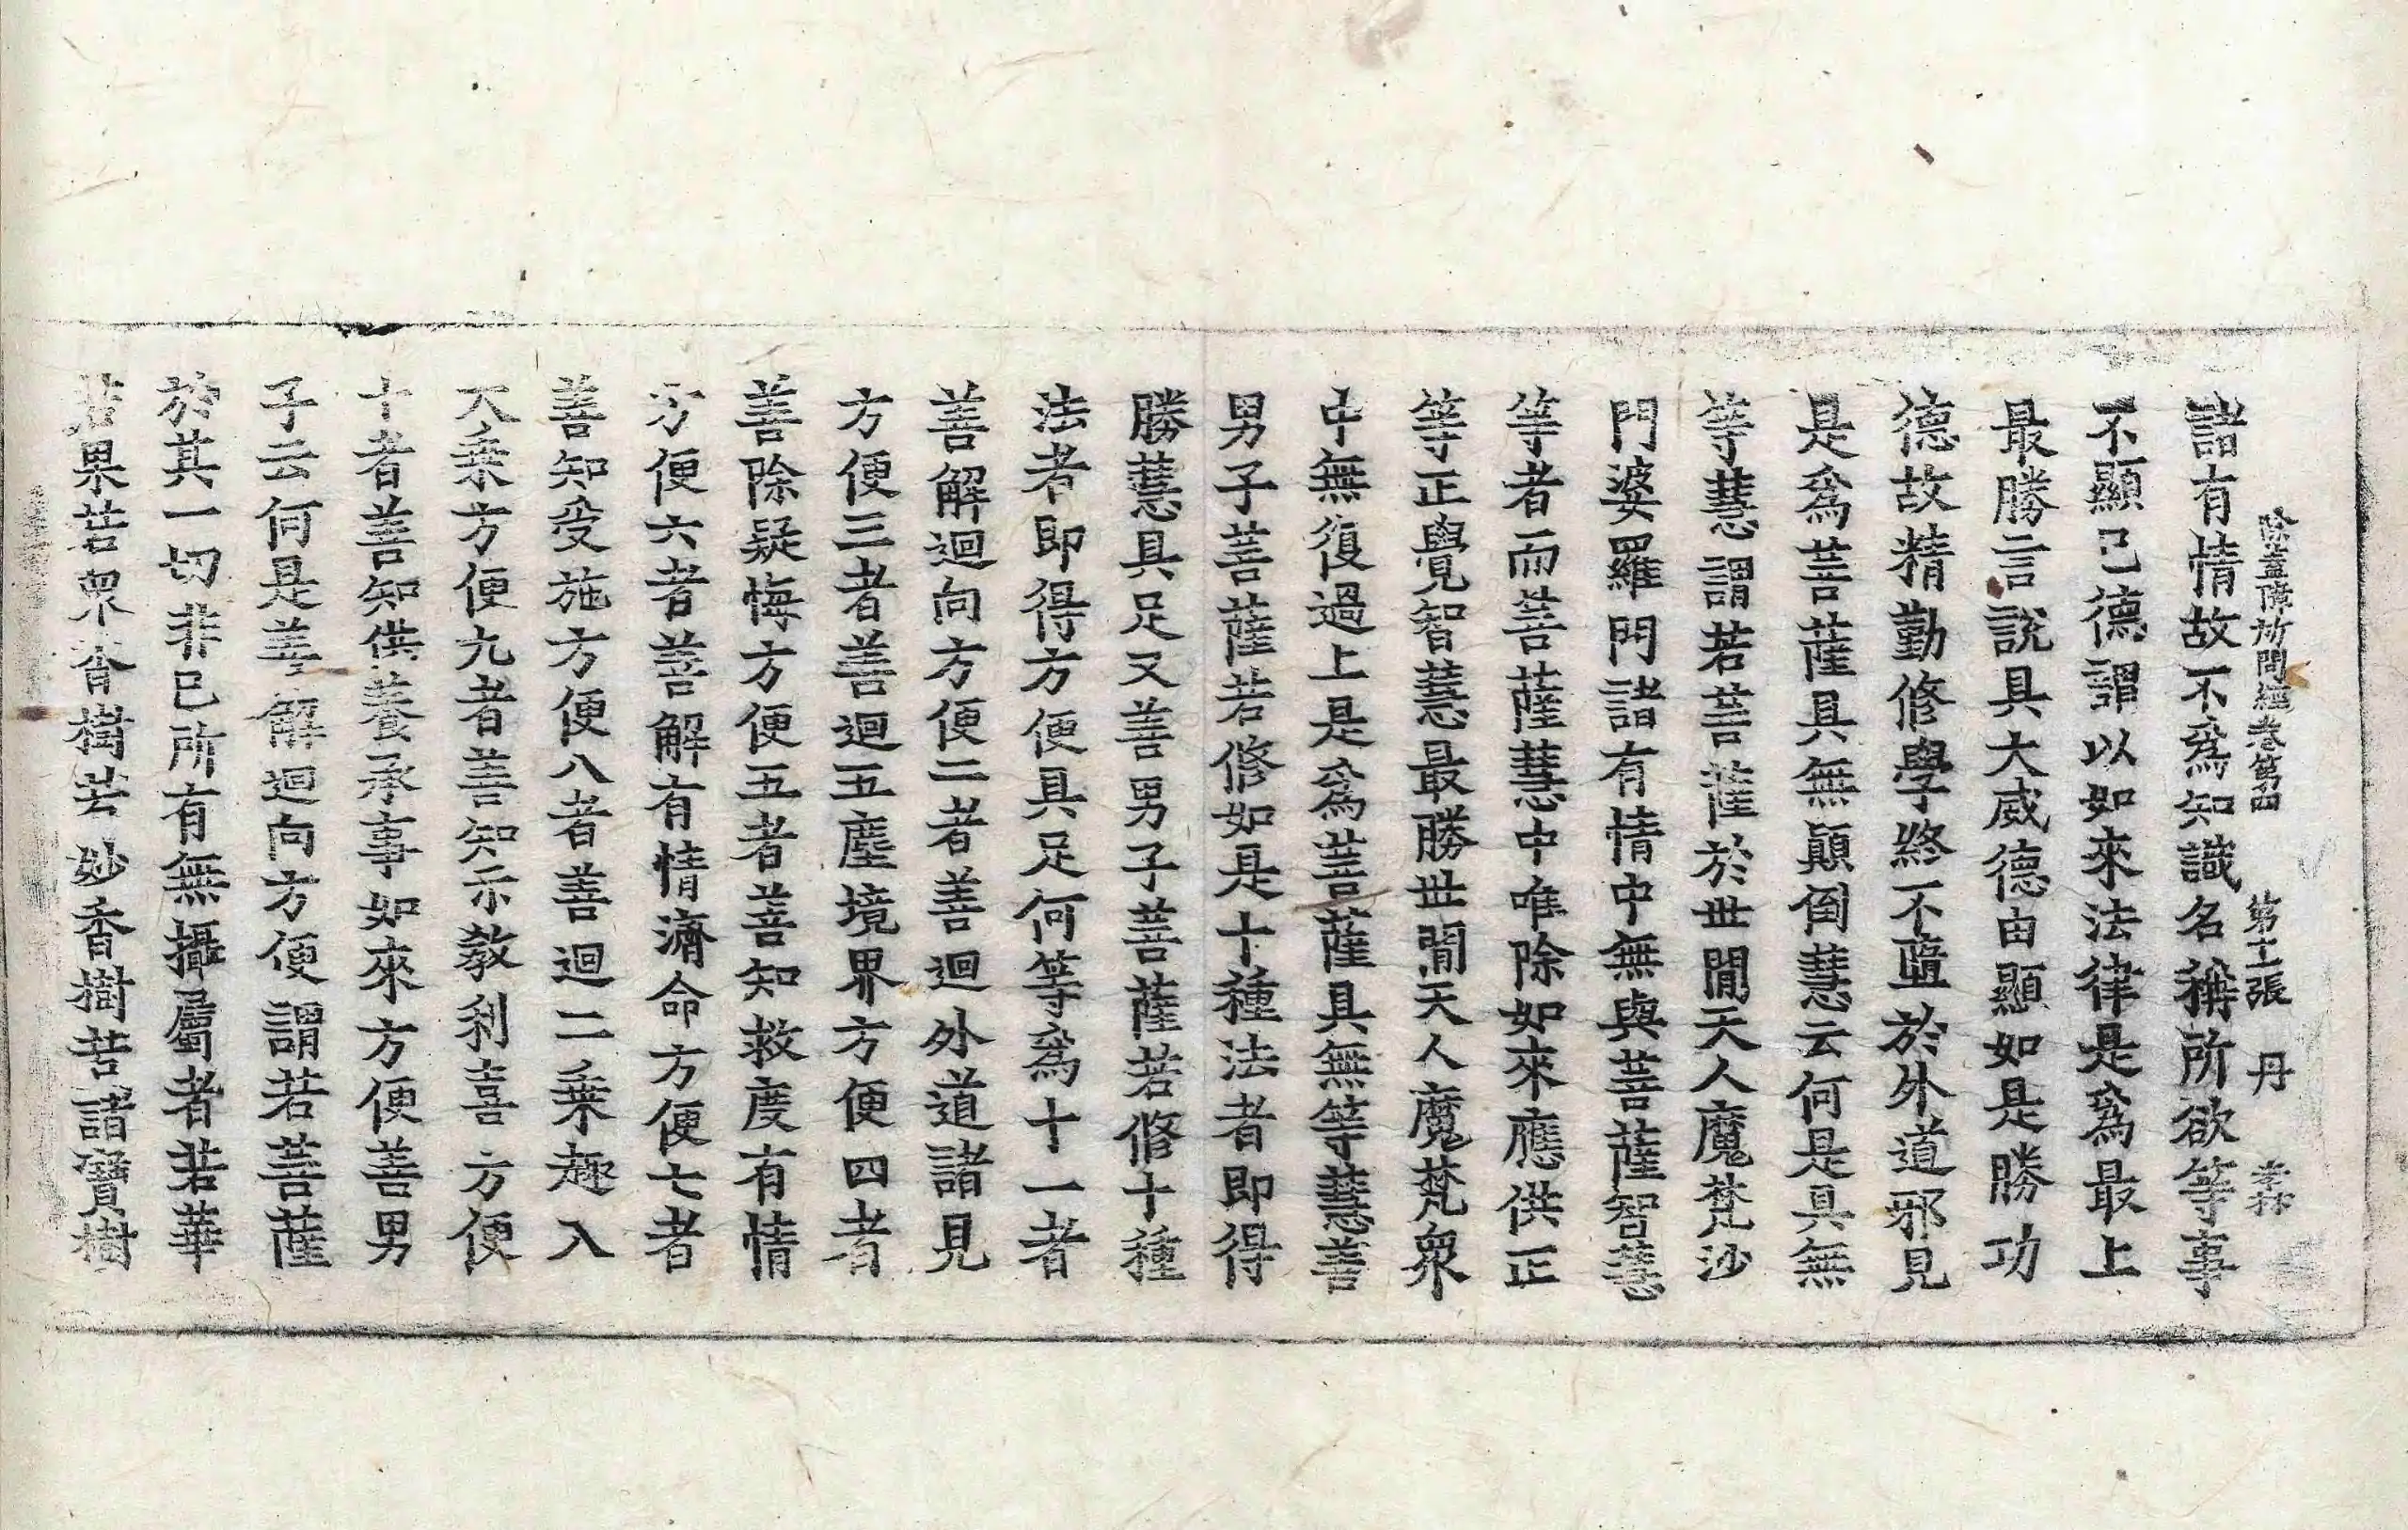 除蓋障所問經卷第四 第十二張 丹 李林
諸有情故不爲知識名稱所欲等事
不顯己德謂以如來法律是爲最上
最勝言說具大威德由顯如是勝功
德故精勤修學終不匱於外道邪見
是爲菩薩具無顚倒慧云何是具無
等慧謂若菩薩於世閒天人魔梵沙
門婆羅門諸有情中無與菩薩智慧
等者而菩薩慧中唯除如來應供正
等正覺智慧最勝世閒天人魔梵衆
中無復過上是爲菩薩具無等慧善
男子菩薩若修如是十種法者即得
勝慧具足又善男子菩薩若修十種
法者即得方便具足何等爲十一者
善解迴向方便二者善迴外道諸見
方便三者善迴五塵境界方便四者
善除疑悔方便五者善知救度有情
方便六者善解有情濟命方便七者
善知受施方便八者善迴二乘趣入
大乘方便九者善知示敎利喜方便
十者善知供養承事如來方便善男
子云何是善解迴向方便謂若菩薩
於其一切非己所有無攝屬者若華
若果若衆香樹若妙香樹若諸寶樹